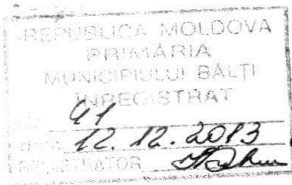 REPUBLICA MOLDOVA
PRIMĂRIA
MUNICIPIULUI BĂLŢI
INREGISTRAT
41
DATA 12.12.2013
REGISTRATOR